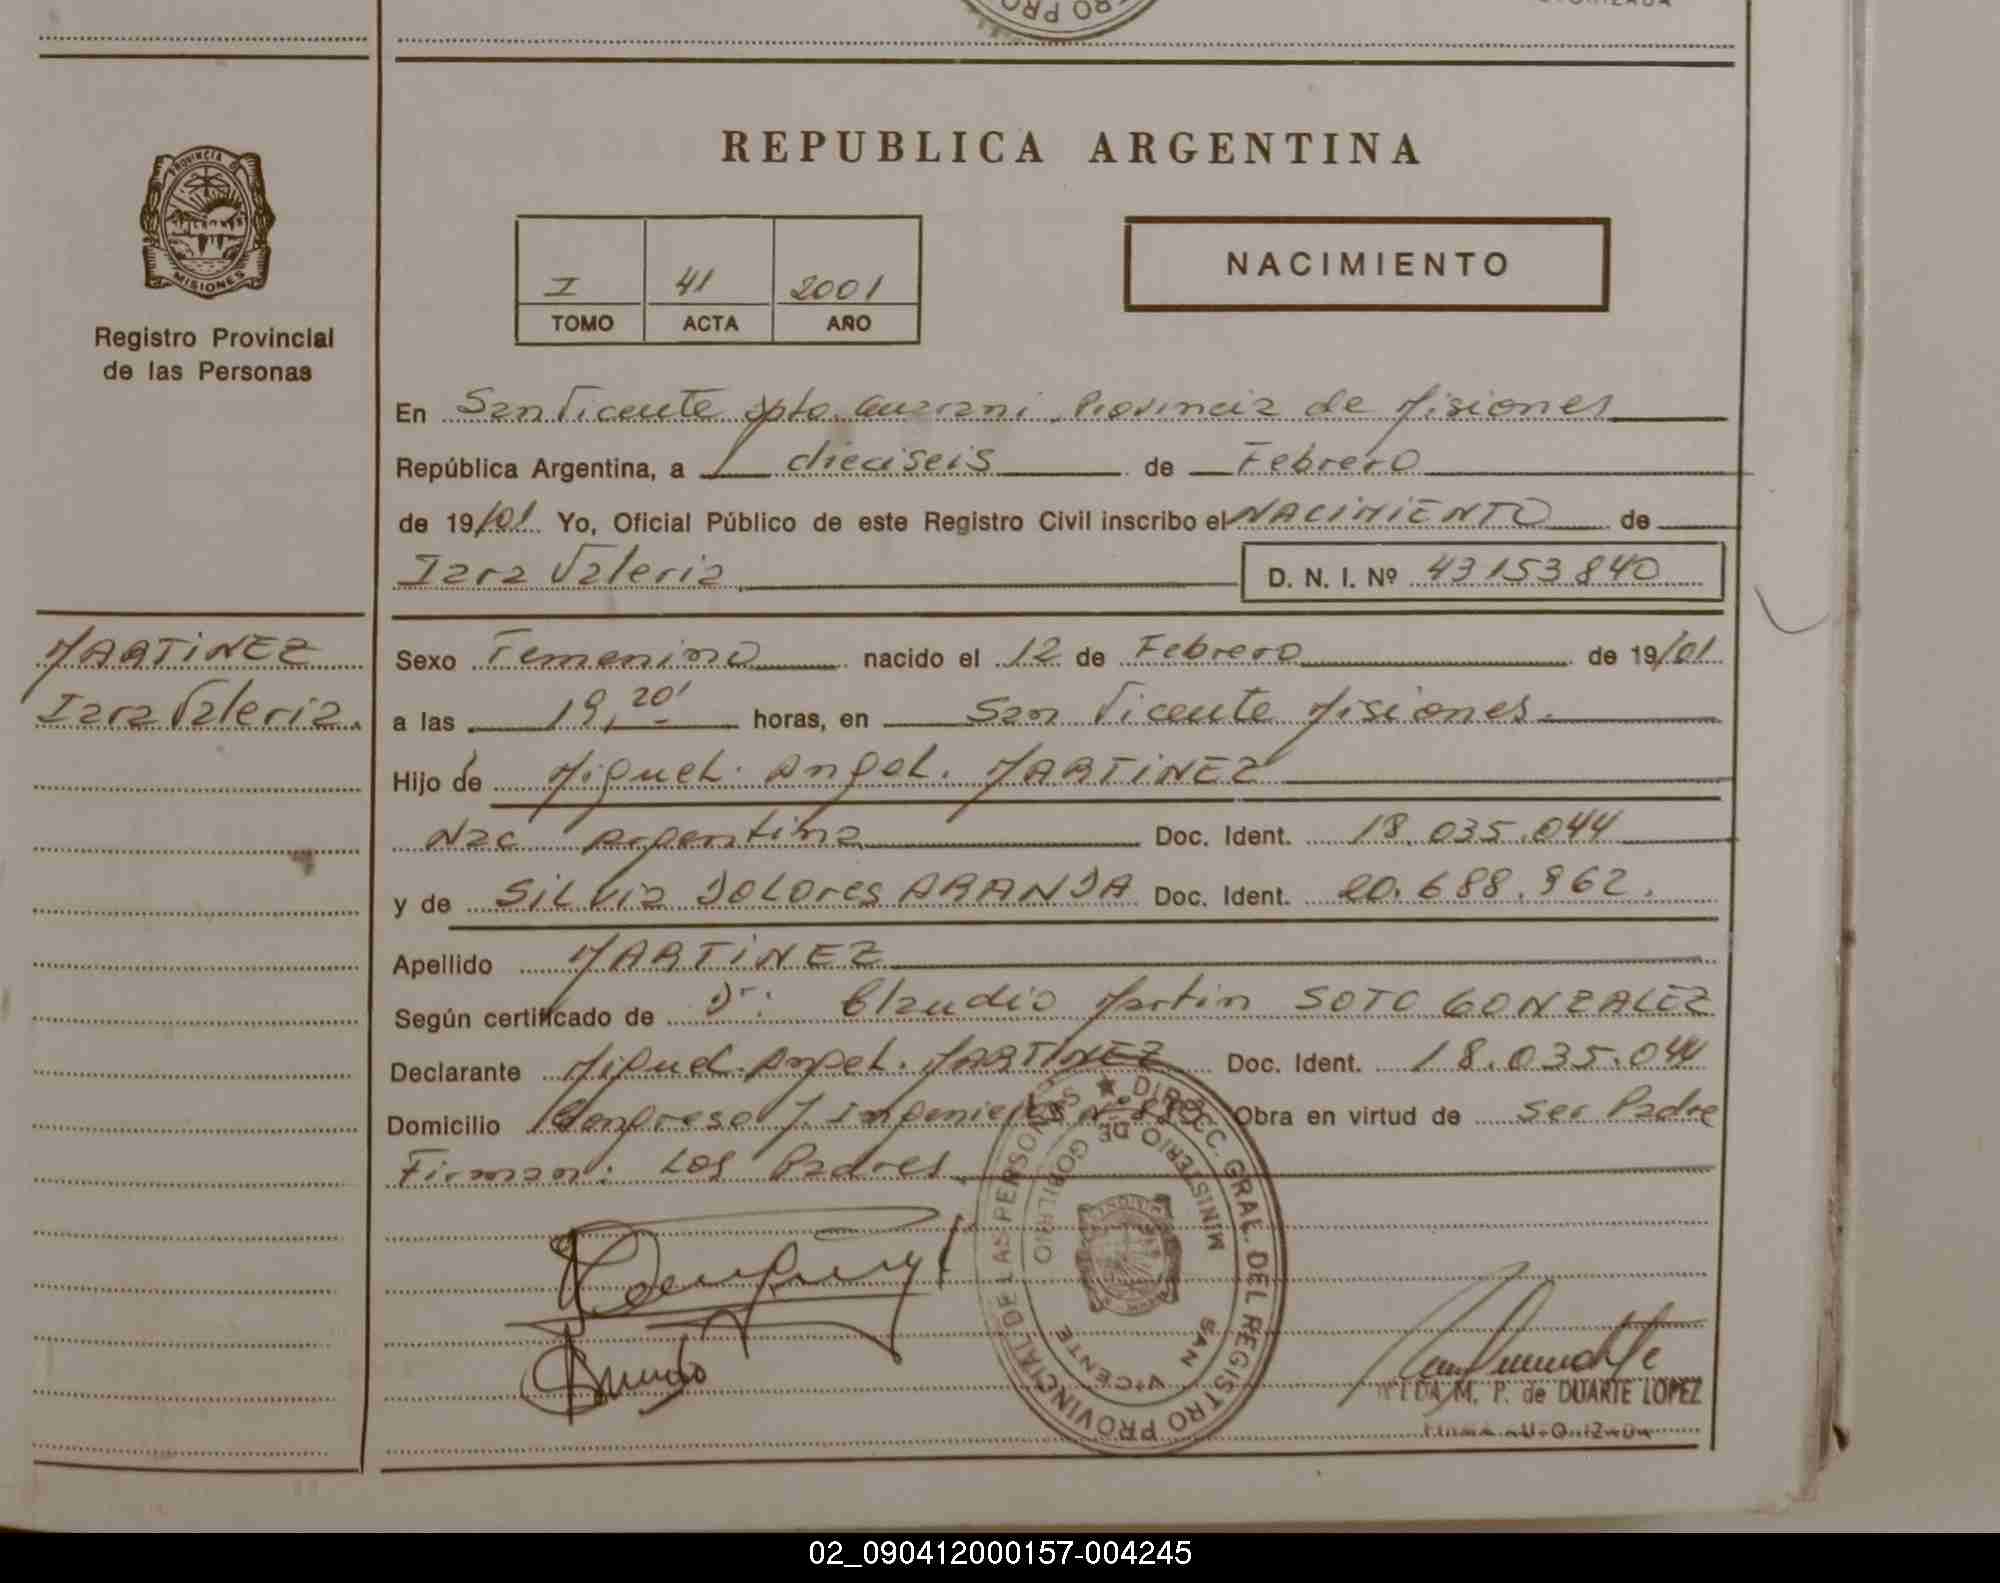 REPUBLICA ARGENTINA
PROVINCIA DE
MISIONES
Registro Provincial
de las Personas
I 41 2001
TOMO ACTA AÑO
NACIMIENTO
En San Vicente Dpto. Guarani, Provincia de Misiones
República Argentina, a dieciseis de Febrero
de 19/01 Yo, Oficial Público de este Registro Civil inscribo el NACIMIENTO de
Iara Valeria D. N. I. Nº 43153840
MARTINEZ
Iara Valeria.
Sexo Femenino nacido el 12 de Febrero de 19/01
a las 19,20' horas, en San Vicente Misiones.
Hijo de Miguel Angel. MARTINEZ
Nac argentina Doc. Ident. 18.035.044
y de SILVIA DOLORES ARANDA Doc. Ident. 20.688.962.
Apellido MARTINEZ
Según certificado de Dr: Claudio Martin SOTO GONZALEZ
Declarante Miguel Angel. MARTINEZ Doc. Ident. 18.035.044
Domicilio Congreso J. Ingenieros Obra en virtud de ser Padre
Firman: Los Padres
DIRECC. GRAL. DEL REGISTRO PROVINCIAL DE LAS PERSONAS
MINISTERIO DE GOBIERNO
SAN VICENTE
M. P. de DUARTE LOPEZ
02_090412000157-004245